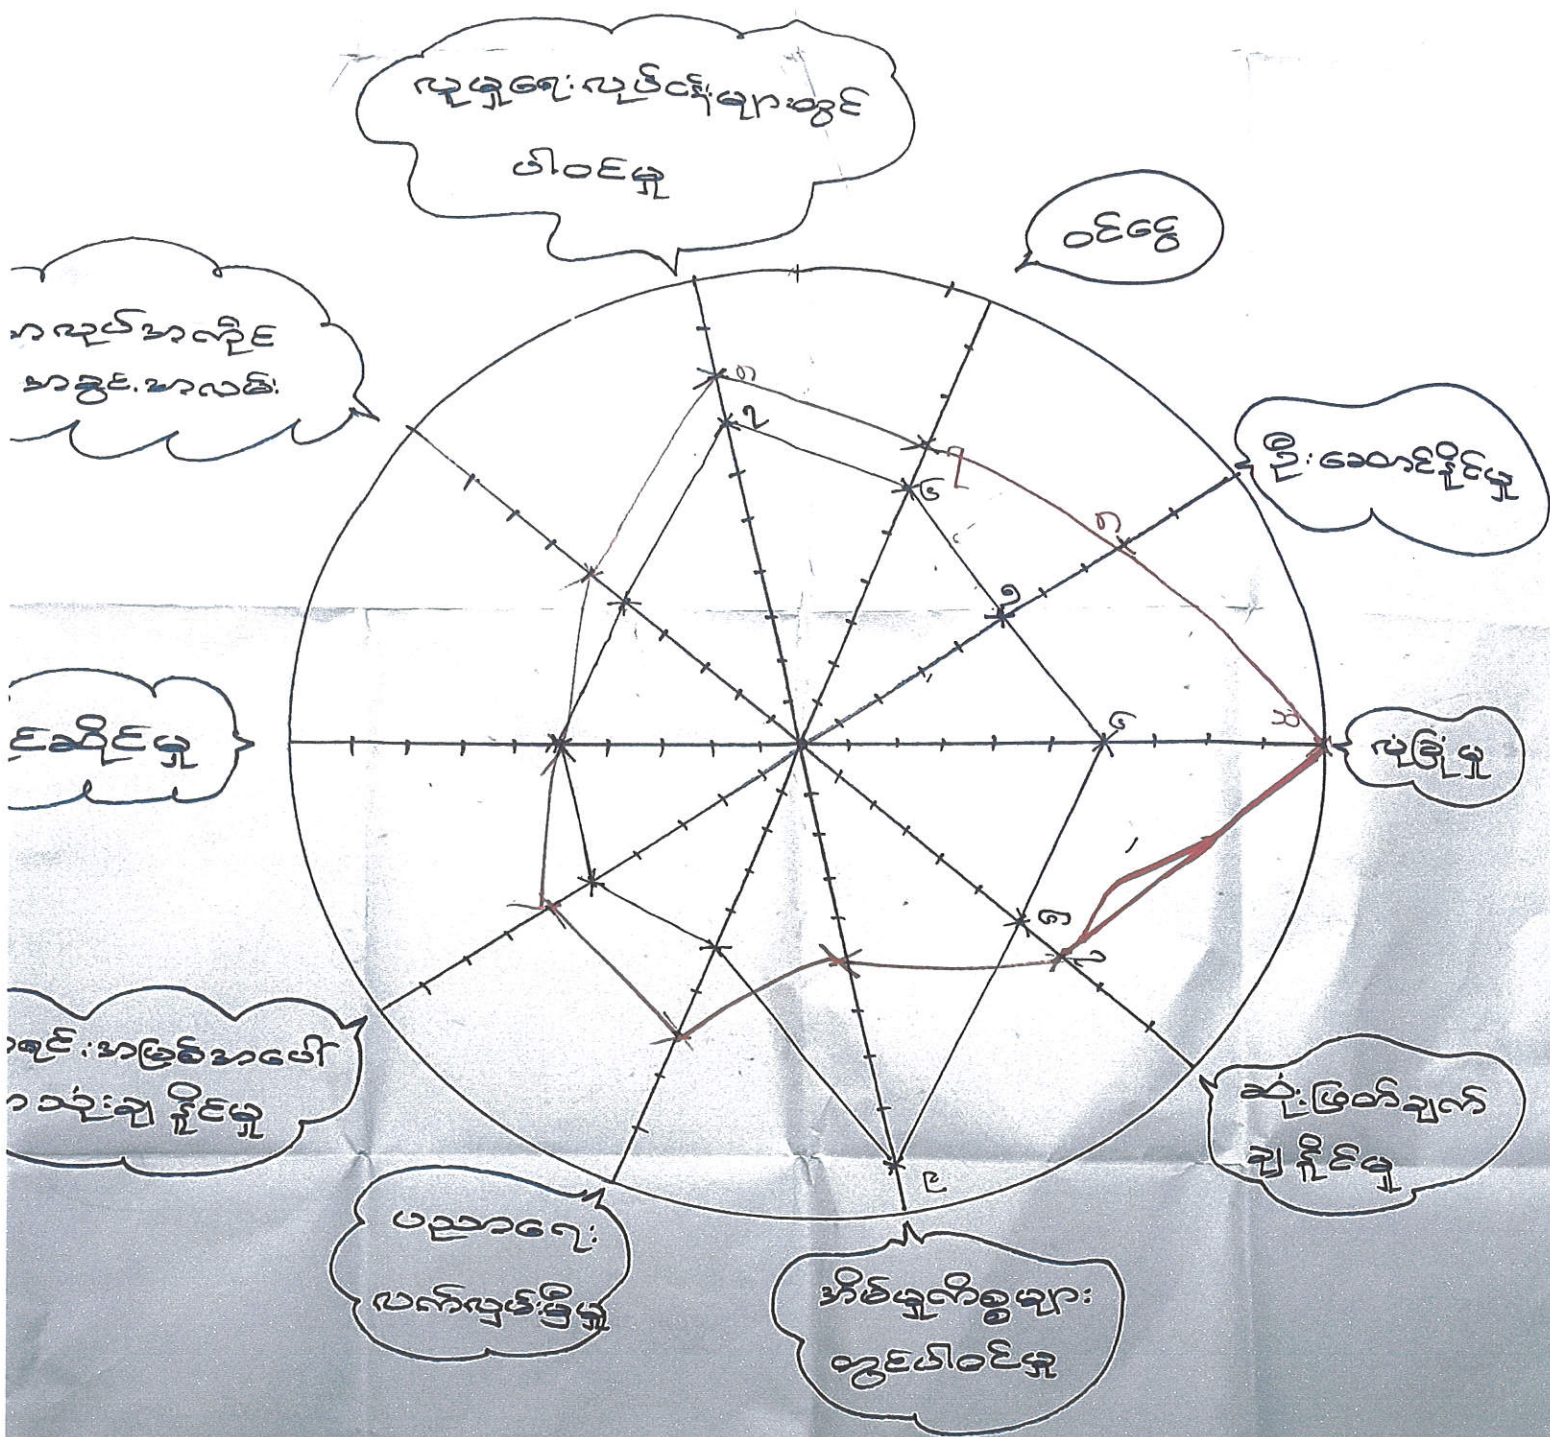 လူမှုရေးလုပ်ငန်းများတွင်
ပါဝင်မှု
ဝင်ငွေ
ဦးဆောင်နိုင်မှု
လုံခြုံမှု
ဆုံးဖြတ်ချက်
ချနိုင်မှု
အိမ်မှုကိစ္စများ
တွင်ပါဝင်မှု
ပညာရေး
လက်လှမ်းမှီမှု
အသုံးချနိုင်မှု
ပိုင်ဆိုင်မှု
အလုပ်အကိုင်
အခွင့်အလမ်း
၈
၇
၇
၆
၈
၅
၆
၅
၇
၉